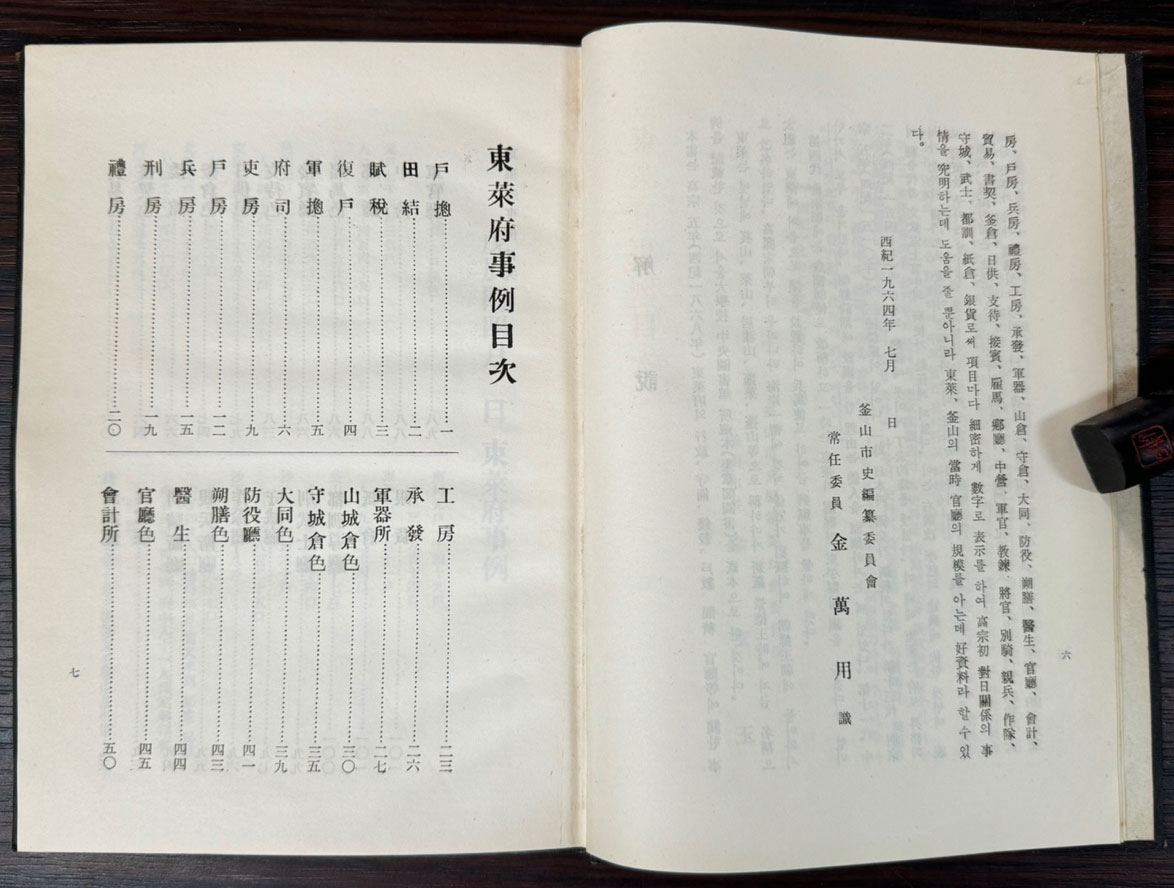 房、戶房、兵房、禮房、工房、承發、軍器、山倉、守倉、大同、防役、朔膳、醫生、官廳、會計、
貿易、書契、釜倉、日供、支待、接賓、雇馬、鄕廳、中營、軍官、敎鍊、將官、別騎、親兵、作隊、
守城、武士、都訓、紙倉、銀貨로써 項目마다 細密하게 數字로 表示를 하여 高宗初 對日關係의 事
情을 究明하는데 도움을 줄 뿐아니라 東萊、釜山의 當時 官廳의 規模를 아는데 好資料라 할 수 있
다。
西紀一九六四年 七月 日
釜山市史編纂委員會
常任委員 金萬用 識
六
東萊府事例目次
戶摠 一
田結 二
賦稅 三
復戶 四
軍摠 五
府司 六
吏房 九
戶房 一二
兵房 一五
刑房 一九
禮房 二〇
工房 二三
承發 二六
軍器所 二七
山城倉色 三〇
守城倉色 三五
大同色 三九
防役廳 四一
朔膳色 四三
醫生 四四
官廳色 四五
會計所 五〇
七